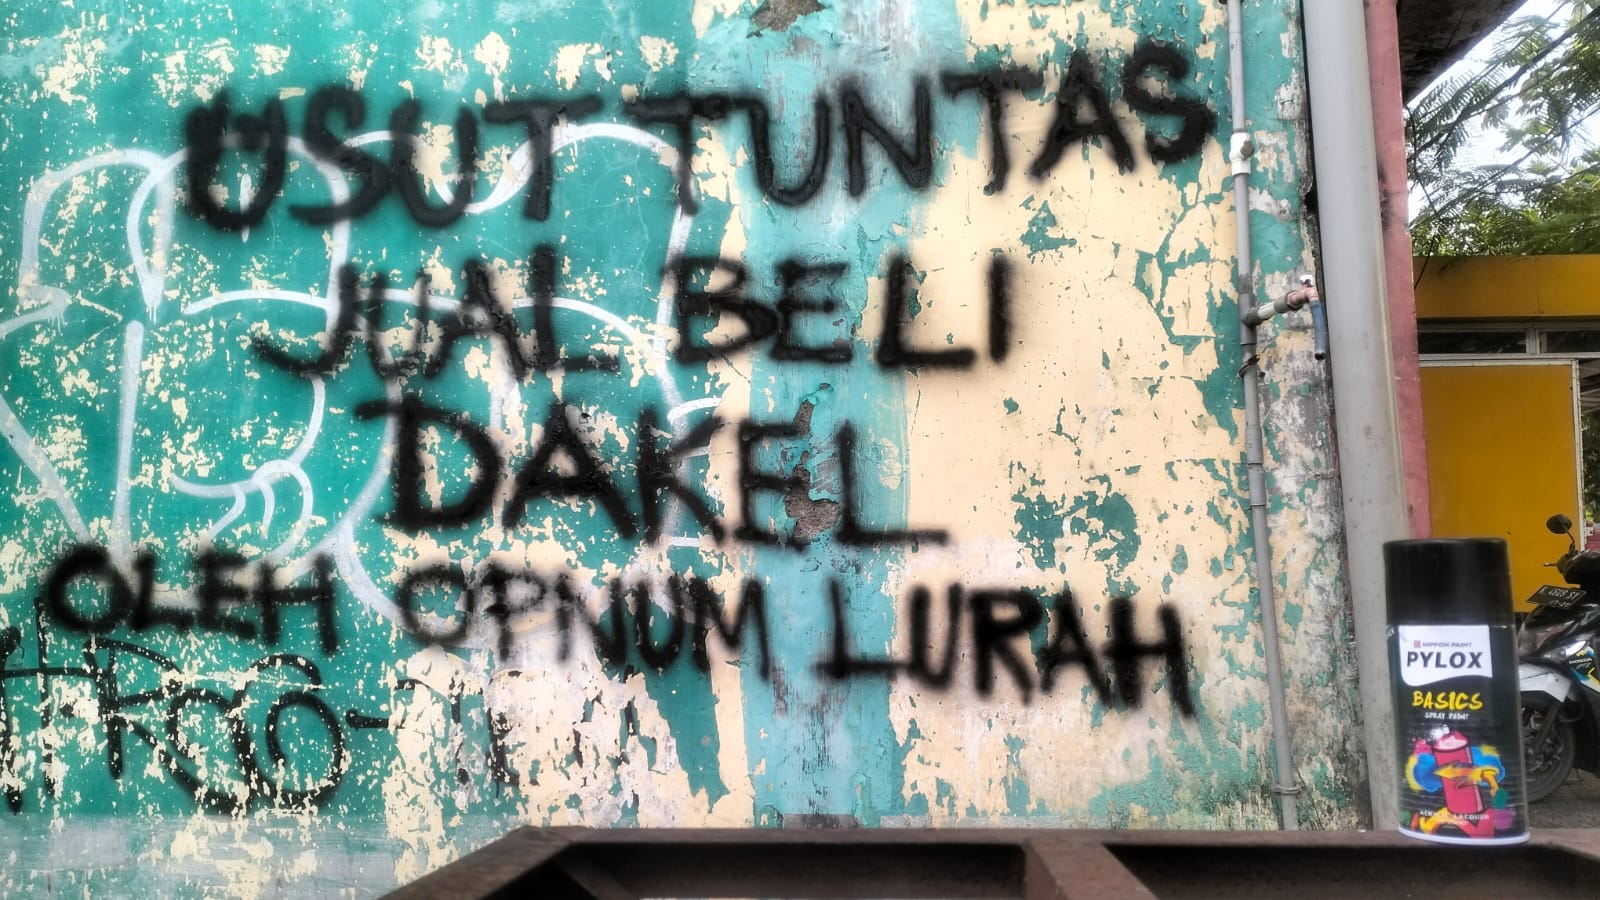 USUT TUNTAS
JUAL BELI
DAKEL
OLEH OPNUM LURAH
NIPPON PAINT
PYLOX
BASICS
SPRAY PAINT
ACRYLIC LACQUER
HONDA